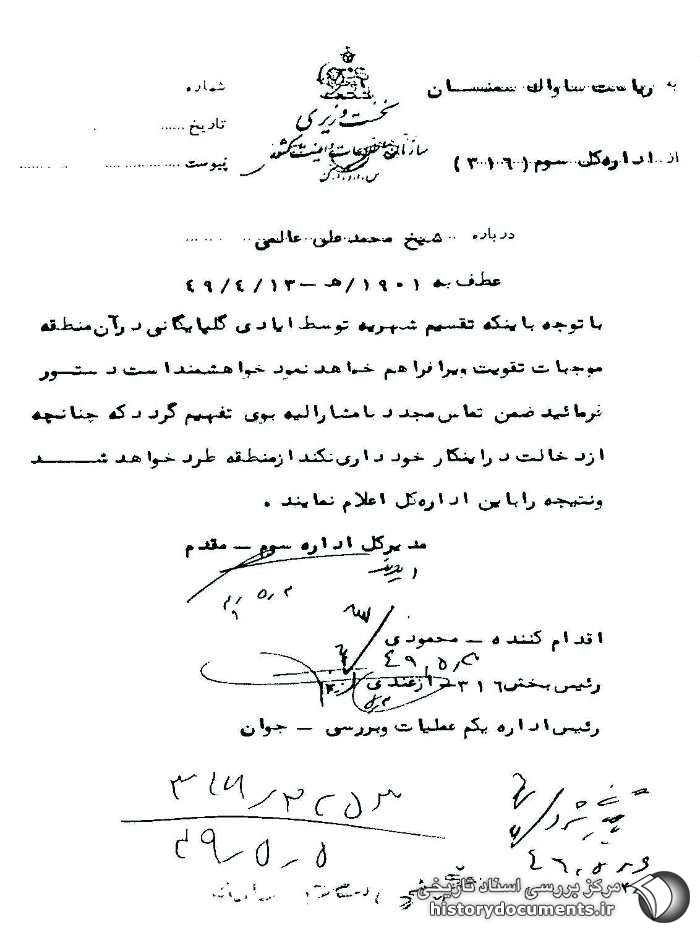 به ریاست ساواك سمنـــان
شماره
نخست وزیری
تاریخ
سازمان اطلاعات و امنیت کشور
از اداره کل سوم (۳۱۶)
پیوست
س.ا.و.ا.ك
درباره شیخ محمد علی عالمی
عطف به ۱۹۰۱/هـ - ۴۹/۴/۱۳
با توجه باینکه تقسیم شهریه توسط ایادی گلپایگانی درآن منطقه
موجبات تقویت ویرا فراهم خواهد نمود خواهشمند است دستور
فرمائید ضمن تماس مجدد با مشارالیه بوی تفهیم گردد که چنانچه
از دخالت در اینکار خود داری نکند از منطقه طرد خواهد شـــد
ونتیجه را باین اداره کل اعلام نمایند .
مدیرکل اداره سوم - مقدم
اقدام کننده - محمودی
۴۹,۵,۳
رئیس بخش ۳۱۶ - ازغندی
رئیس اداره یکم عملیات وبررسی - جوان
۴۹/۵/۵
مرکز بررسی اسناد تاریخی
historydocuments.ir